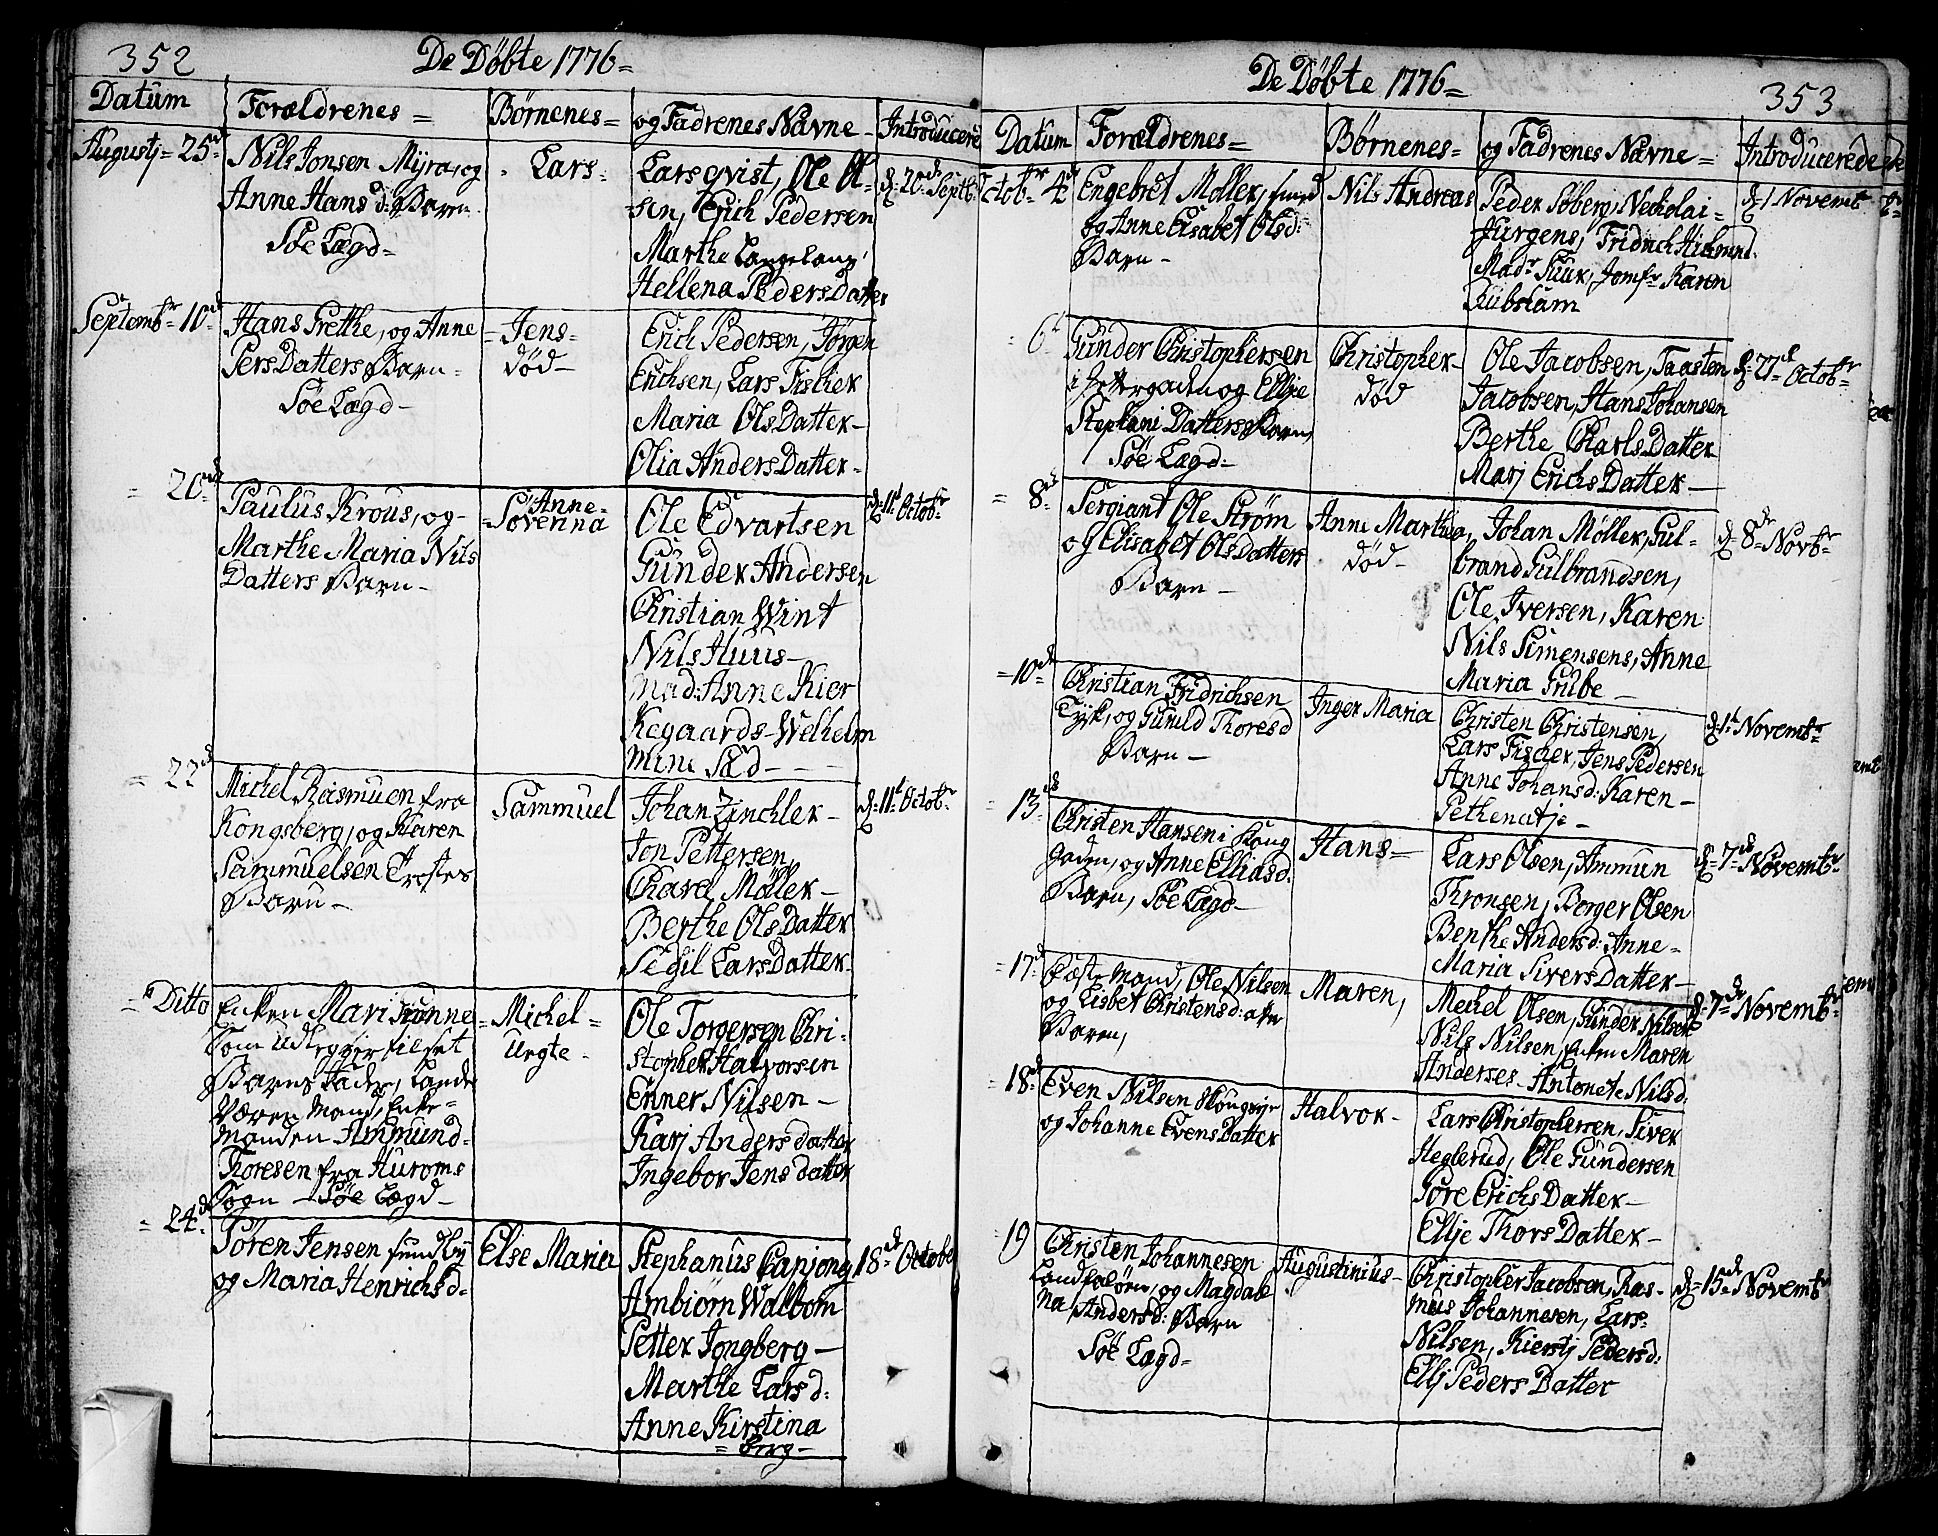 352
De Døbte 1776=
Datum
Forældrenes=
Børnenes=
og Fadrenes Navne-
Introducere
Augustj= 25de
Nils Jonsen Mÿra, og
Anne Hans d: Barn
Søe Lægd-
Lars-
Lars qvist, Ole Ol-
sen, Erich Pedersen
Marthe Langelang
Hellena Peders Datter
d: 20de Septb:
Septembr 10de
Hans Grethe, og Anne
Pers Datters Barn-
Søe Lægd-
Jens-
død-
Erich Pedersen, Jørgen
Erichsen, Lars Fischer
Maria Ols Datter-
Olia Anders Datter-
= 20de
Paulus Krous, og-
Marthe Maria Nils
Datters Barn-
Anne-
=Soverina
Ole Edvartsen
Gunder Andersen
Christian Wint
Nils Huus-
Mad: Anne Kier
Kegaards-Welhelm
mine Sæd-
d: 11t Octobr
= 22de
Michel Rasmuen fra
Kongsberg, og Karen
Sammuelsen
Barn-
Sammuel
Johan Zinchler-
Jon Pettersen,
Charel Møller-
Berthe Ols Datter
Segil Lars Datter-
d: 11t Octobr
= Ditto
Enken Mari
Som Udlegger til sit
Barns Fader, Lands
Væren Mand, Enke=
Manden Ammund-
Thoresen fra Huroms
Sogn - Søe Lægd-
=Michel=
Uegte-
Ole Torgersen Chri-
stopher Halvorsen
Enner Nilsen-
Karj Anders datter
Ingebor Jens datter
= 24de
Søren Jensen Sundby
og Maria Henrichsd-
Else Maria
Stephanus Canjong
Ambiørn Walbom
Petter Jongberg-
Marthe Larsd:
Anne Kirstina
=berg-
18de October
De Døbte 1776=
353
Datum
Forældrenes=
Børnenes=
og Fadrenes Navne=
Introducerede
Octobr 4de
Engebret Møller, smed
og Anne Elisabet Olsd:
Barn-
Nils Andreas
Peder Søberg, Neckolai-
Jurgens, Fridrich
Madr Suur, Jomfr Karen
Kubsham
d: 1 Novembr
= 6t
Gunder Christophersen
i og Ellje
Stephani Datters Barn,
Søe Lægd-
Christopher-
død
Ole Jacobsen, Taasten
Jacobsen, Hans Johansen
Berthe Charls Datter
Marj Erichs Datter-
d: 27de Octobr-
= 8de
Sergiant Ole Strøm
og Elisabet Ols Datters
Barn-
Anne Marthea,
død-
Johan Møller, Gul-
brand Gulbrandsen,
Ole Iversen, Karen
Nils Simensens, Anne
Maria Grube-
d: 8de Novbr-
=10de
Christian Fridrichsen
Tÿsk, og Gunild Thoresd
Barn-
Inger Maria
Christen Christensen,
Lars Fischer, Jens Pedersen
Anne Johansd: Karen-
Pethenatje-
d: 1t Novembr
= 13de
Christen Hansen i Kong
Gaden, og Anne Elliasd:
Barn, Søe Lægd-
Hans=
Lars Olsen, Ammun
Thronsen, Borger Olsen
Benthe Andersd: Anne-
Maria Sivers Datter-
d: 7de Novembr
= 17de
Mand, Ole Nilsen
og Lisbet Christensd:
Barn,
Maren,
Mechel Olsen, Gunder Nilsen
Nils Nilsen, Enken Maren
Anderses- Antonet Nilsd:
d: 7de Novembr
= 18de
Even Nilsen
og Johanne Evens Datter
Halvor-
Lars Christophersen, Siver
Heglerud, Ole Gundersen
Gore Erichs Datter-
Ellje Thors Datter-
19
Christen Johannesen
og Magdale
na Andersd: Barn
Søe Lægd-
Augustinius-
Christopher Jacobsen, Ras-
mus Johannesen, Lars-
Nilsen, Kierstj Pedersd:
Ellj Peders Datter
d: 15de Novembr